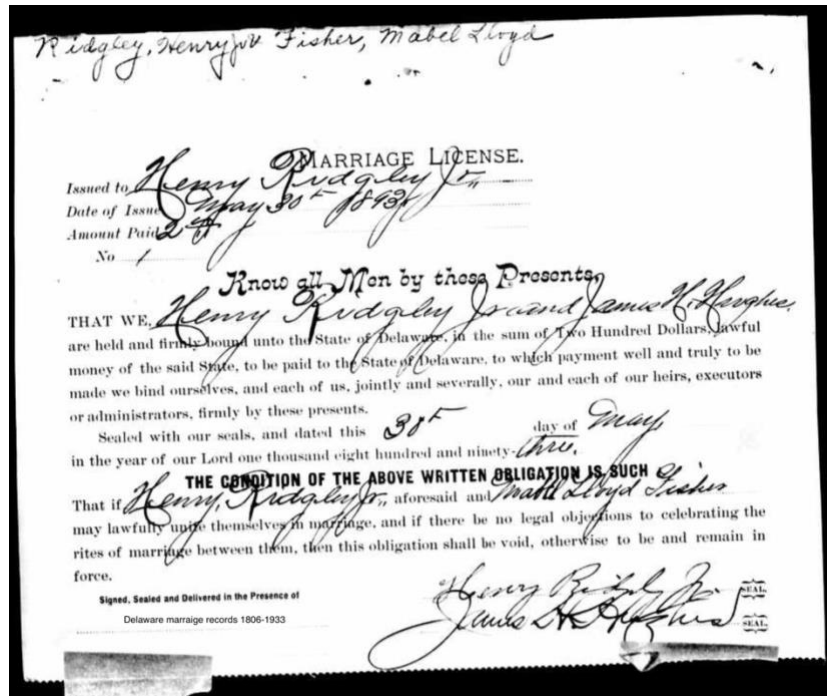 Ridgley, Henry Jr Fisher, Mabel Lloyd
MARRIAGE LICENSE.
Issued to Henry Ridgley Jr.,
Date of Issue May 30th 1893
Amount Paid 2
No 1
Know all Men by these Presents,
THAT WE, Henry Ridgley Jr and James H. Hughes
are held and firmly bound unto the State of Delaware, in the sum of Two Hundred Dollars, lawful
money of the said State, to be paid to the State of Delaware, to which payment well and truly to be
made we bind ourselves, and each of us, jointly and severally, our and each of our heirs, executors
or administrators, firmly by these presents.
Sealed with our seals, and dated this 30th day of May
in the year of our Lord one thousand eight hundred and ninety-three.
THE CONDITION OF THE ABOVE WRITTEN OBLIGATION IS SUCH
That if Henry Ridgley Jr., aforesaid and Mabel Lloyd Fisher
may lawfully unite themselves in marriage, and if there be no legal objections to celebrating the
rites of marriage between them, then this obligation shall be void, otherwise to be and remain in
force.
Henry Ridgely Jr. SEAL.
Signed, Sealed and Delivered in the Presence of
James H Hughes SEAL.
Delaware marraige records 1806-1933